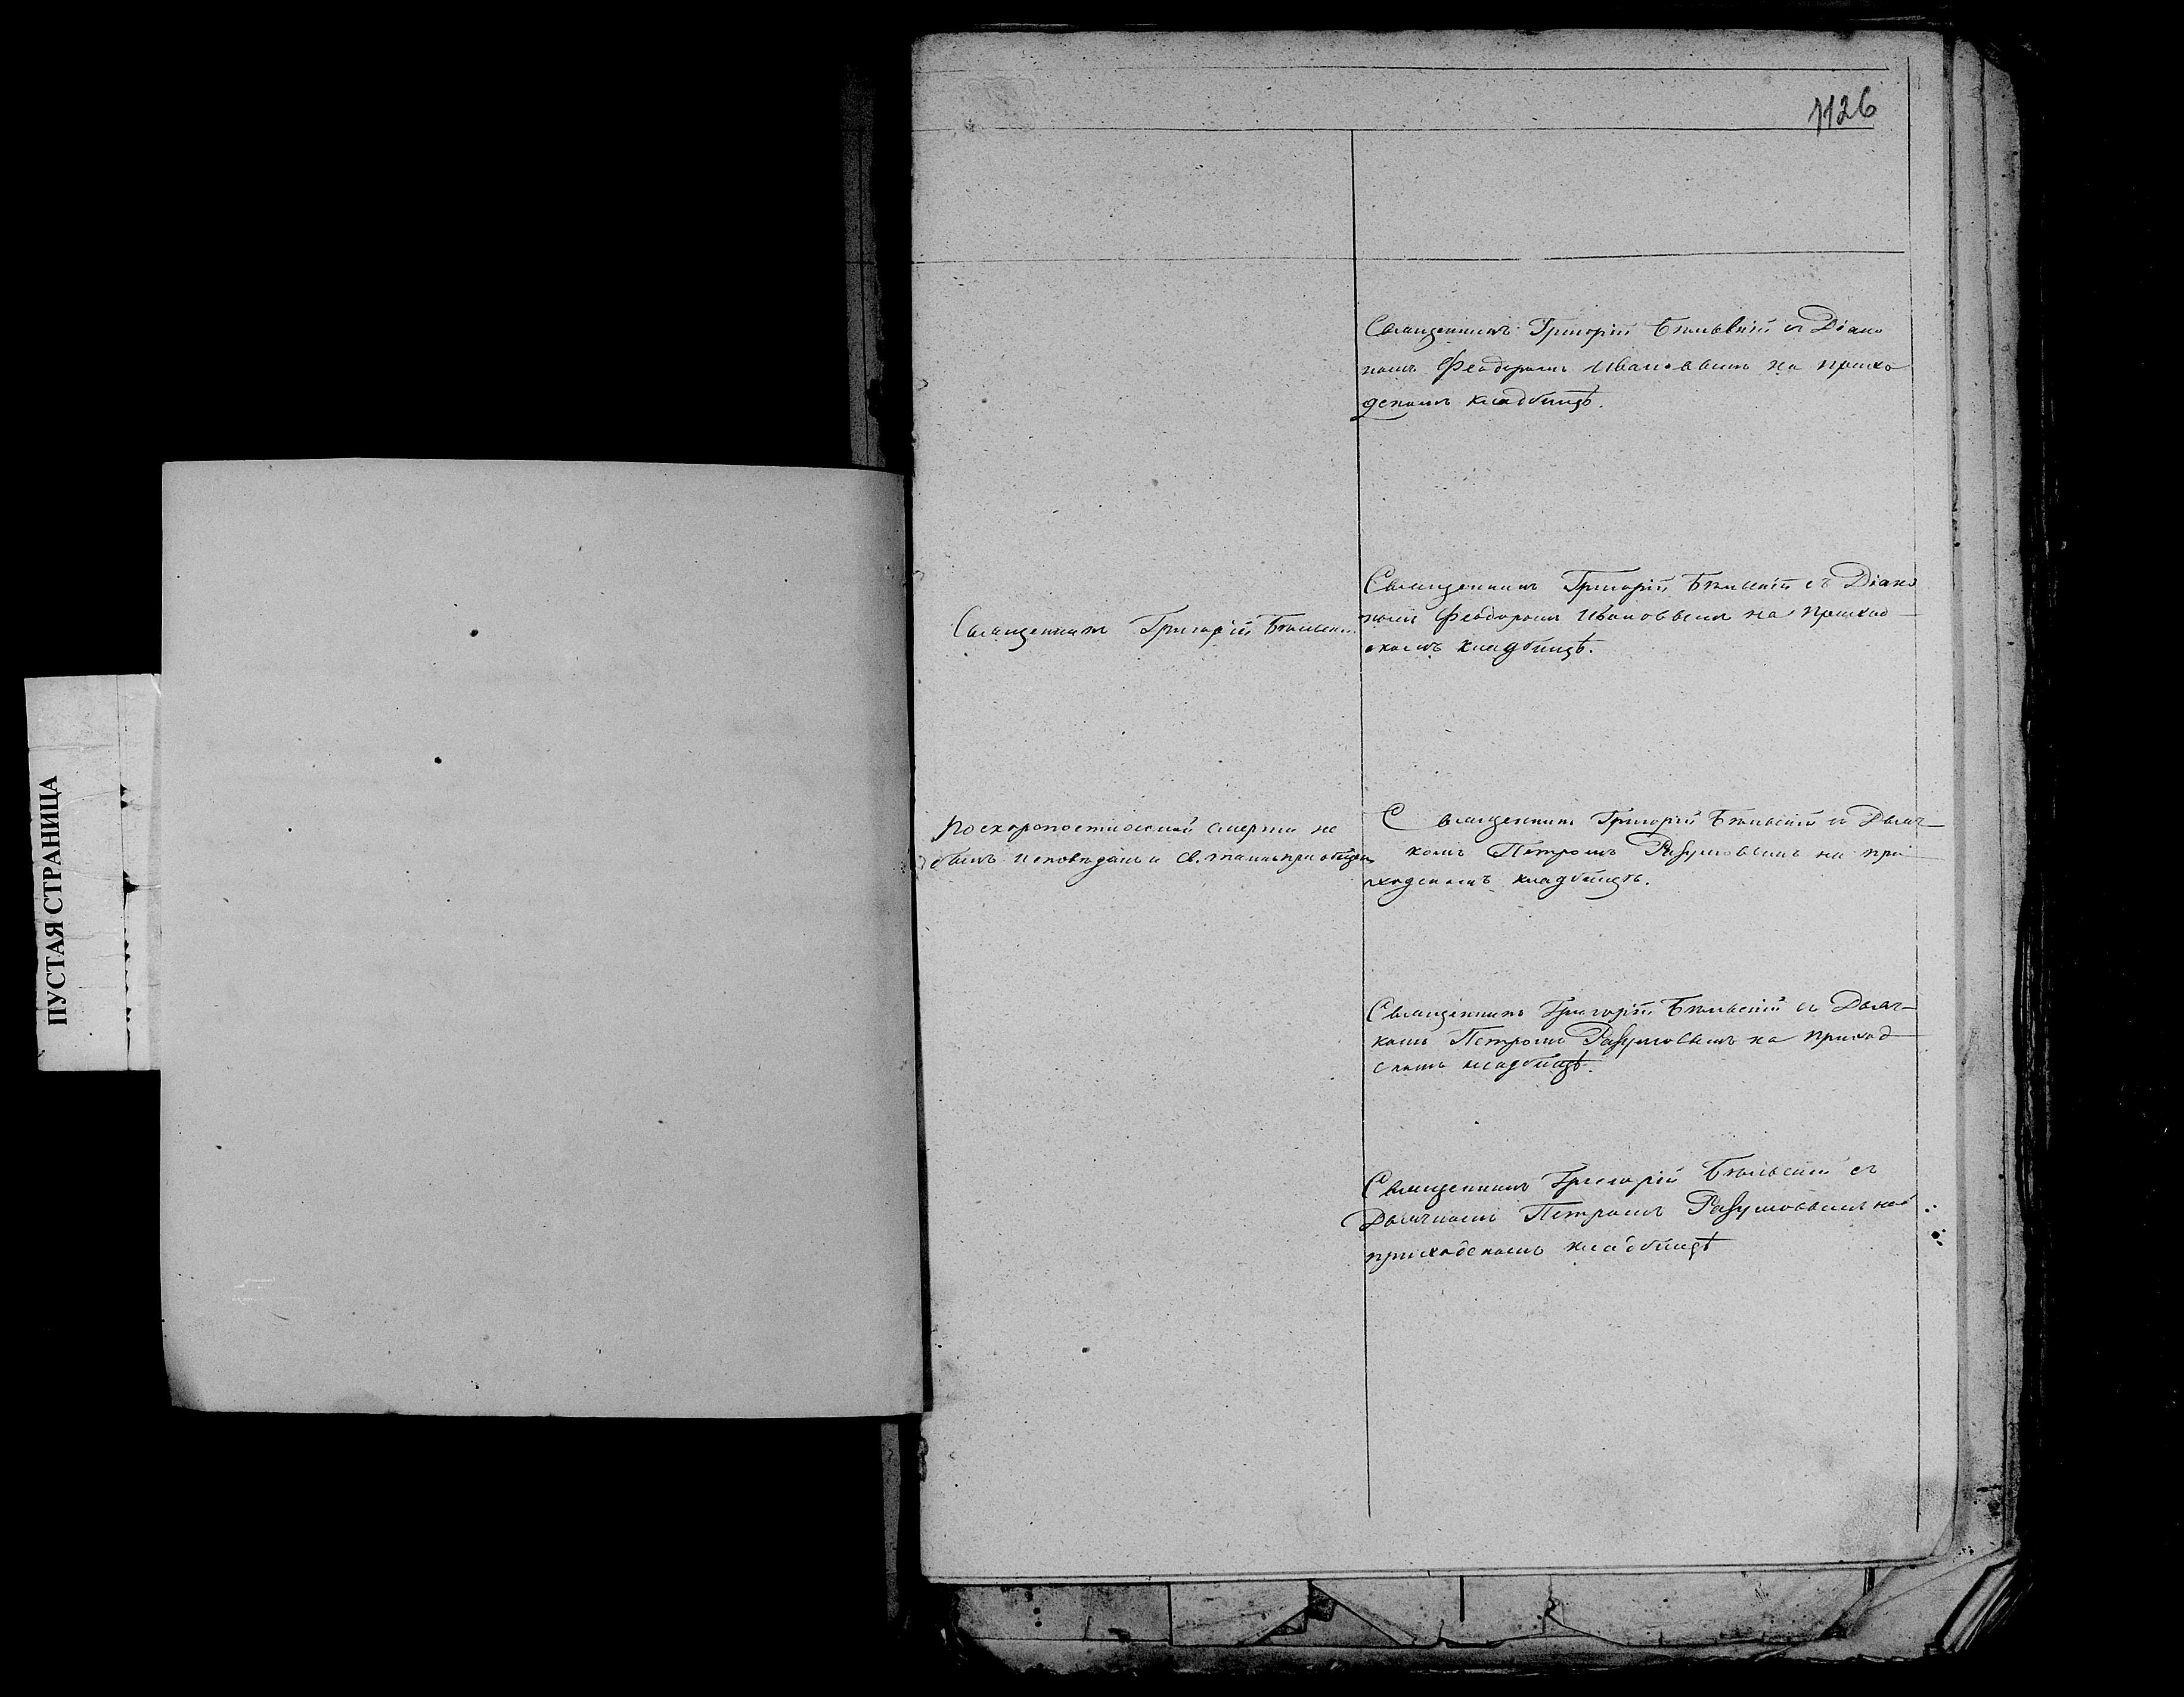 ПУСТАЯ СТРАНИЦА
1126
Священникъ Григорій Бѣльскій съ Діако
номъ Феодоромъ Ивановымъ на прихо
дскомъ кладбищѣ.
Священникъ Григорій Бѣльскій
Священникъ Григорій Бѣльскій съ Діако
номъ Феодоромъ Ивановымъ на приход
скомъ кладбищѣ.
По скоропостижной смерти не
былъ исповѣданъ и св. таинъ пріобщен
Священникъ Григорій Бѣльскій съ Дьяч-
комъ Петромъ Разумовымъ на при
ходскомъ кладбищѣ.
Священникъ Григорій Бѣльскій съ Дьяч-
комъ Петромъ Разумовымъ на приход
скомъ кладбищѣ.
Священникъ Григорій Бѣльскій съ
Дьячкомъ Петромъ Разумовымъ на
приходскомъ кладбищѣ